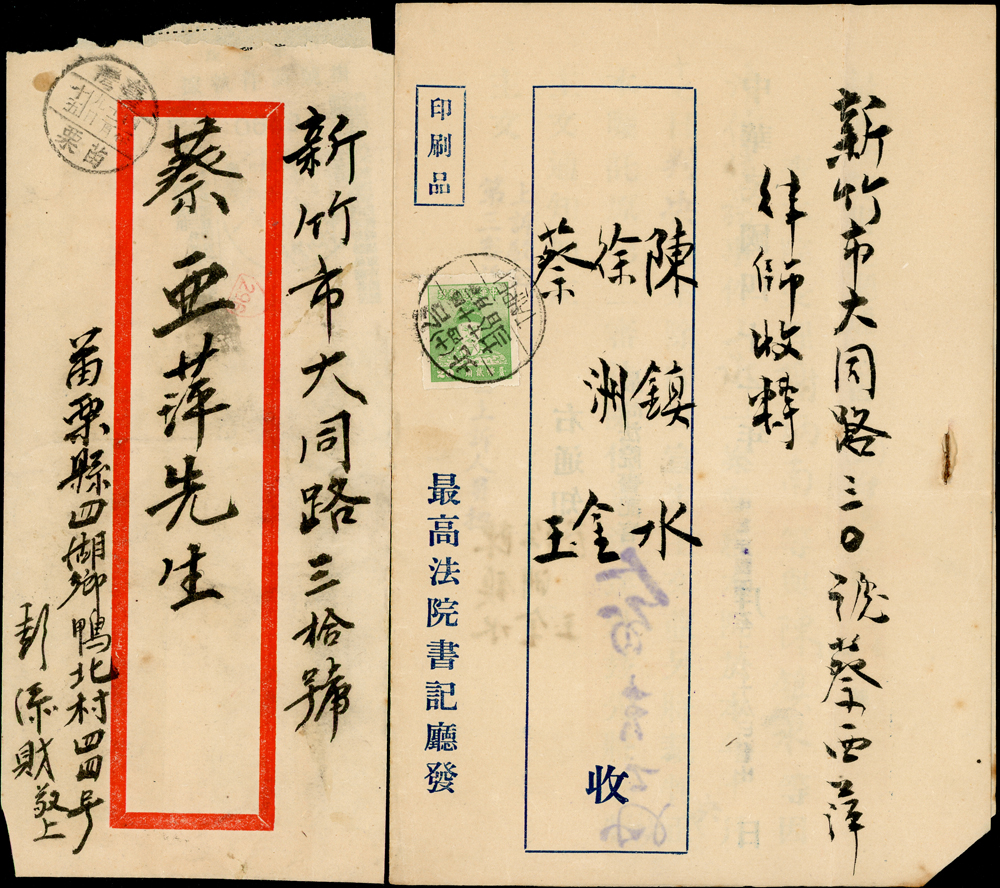 新竹市大同路三〇號蔡西萍
律師收轉
陳鎮水
徐洲金
蔡玉
收
印刷品
最高法院書記廳發
新竹市大同路三拾號
蔡亜萍先生
苗栗縣四湖鄉鴨北村四四号
彭添財敬上
臺灣
苗栗
295